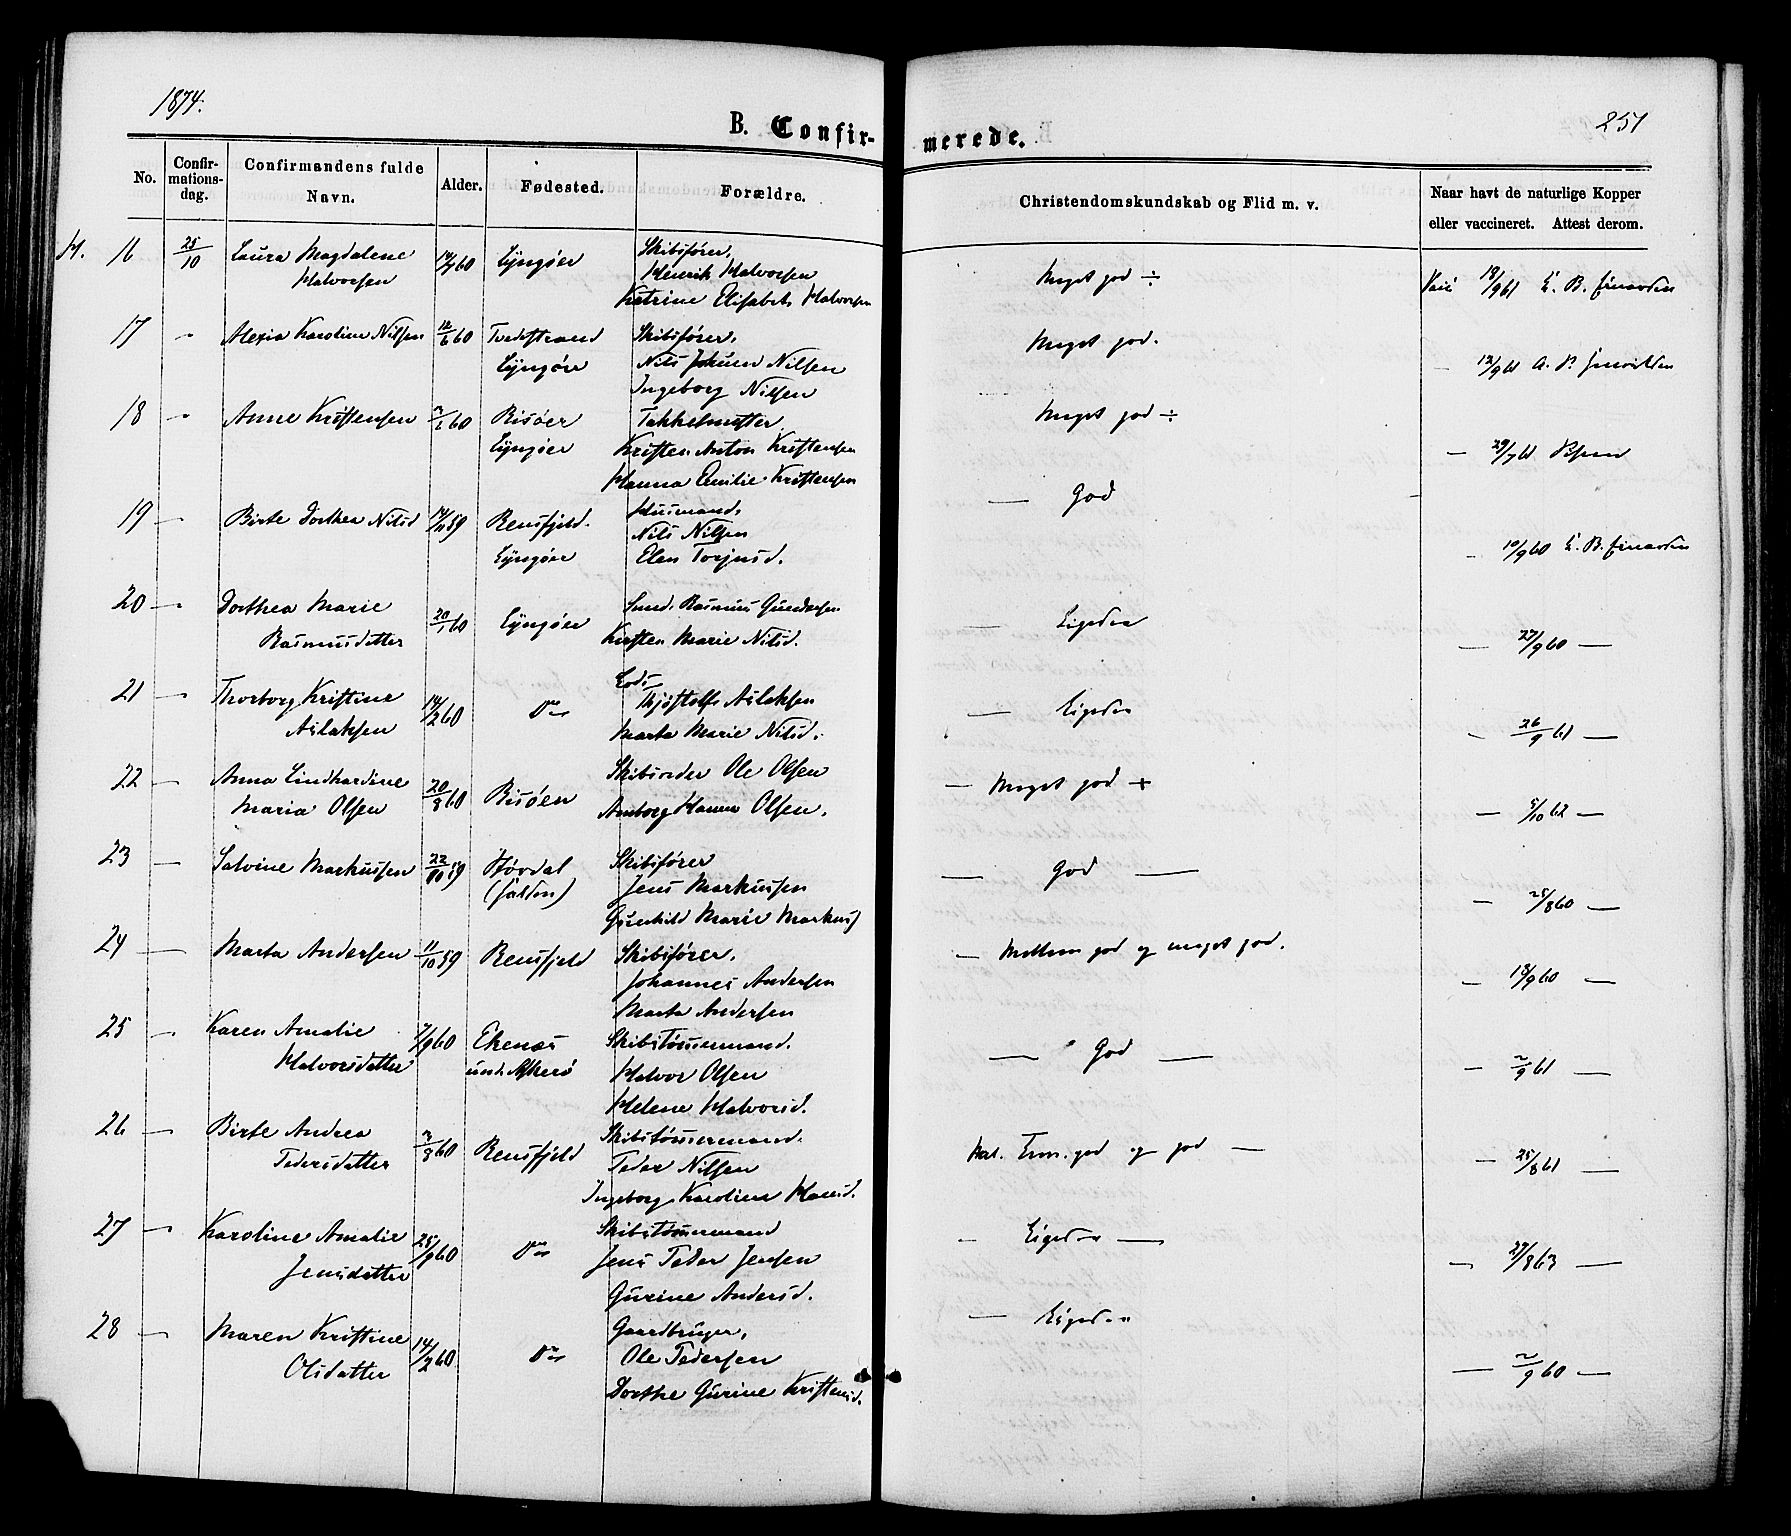 1874.
251
B. Confir-
merede.
No.
Confir-
mations-
dag.
Confirmandens fulde
Navn.
Alder.
Fødested.
Forældre.
Christendomskundskab og Flid m. v.
Naar havt de naturlige Kopper
eller vaccineret. Attest derom.
16 25/10 Laura Magdalene 60 Lyngøer Skibsfører,
Halvorsen Henrik Halvorsen
Katrine Elisabeth Halvorsen
Meget god ÷
18/9 61
17 " Alexia Karoline Nilsen 12/6 60 Tvedestrand Skibsfører,
Lyngøer Nils Nilsen
Ingeborg Nilsen
Meget god.
— 13/9 61
18 " Anne Kristensen 60 Risøer Takkelmester
Lyngøer Kristen Anton Kristensen
Hanna Emilie Kristensen
Meget god ÷
— 29/7 61
19 — Birte Dorthea Nilsd 14/11 59 Rensfjeld. Husmand,
Nils Nilsen
Lyngøer Elen Torjusd.
— God
— 10/9 60
20 — Dorthea Marie 20/1 60 Lyngøer Rasmus
Rasmusdatter Kirsten Marie Nilsd.
— Ligeden
— 27/9 60 —
21 — Thorborg Kristine 14/2 60 Do Lods
Aslaksen Thjøstolf Aslaksen
Marta Marie Nilsd.
— Ligeden
— 26/9 61 —
22 — Anna Lindhardine 20/8 60 Risøen Ole Olsen
Maria Olsen Hanna Olsen.
— Meget god +
— 5/10 62 —
23 — Salvine Markussen 22/10 59 Skibsfører
Jens Markussen
Gunhild Marie Markus
— God —
— 25/8 60 —
24 — Marta Andersen 11/10 59 Rensfjeld Skibsfører,
Johannes Andersen
Marta Andersen
— Mellem god og meget god.
— 18/9 60 —
25 — Karen Amalie 7/9 60 Ekenæs Skibstømmermand.
Halvorsdatter Halvor Olsen
Helene Halvorsd.
— God —
— 2/9 61 —
26 — Birte Andrea 60 Rensfjeld Skibstømmermand.
Pedersdatter Peder Nilsen
Ingeborg Karoline Hansd.
god og god —
— 25/8 61 —
27 — Karoline Amalie 25/9 60 Do Skibstømmermand
Jensdatter Jens Peder Jensen
Gurine Andersd.
— Ligeden —
— 27/8 63 —
28 — Maren Kristine 14/2 60 Do Gaardbruger,
Olsdatter Ole Pedersen
Dorthe Gurine Kristensd.
— Ligeden
— 2/9 60 —